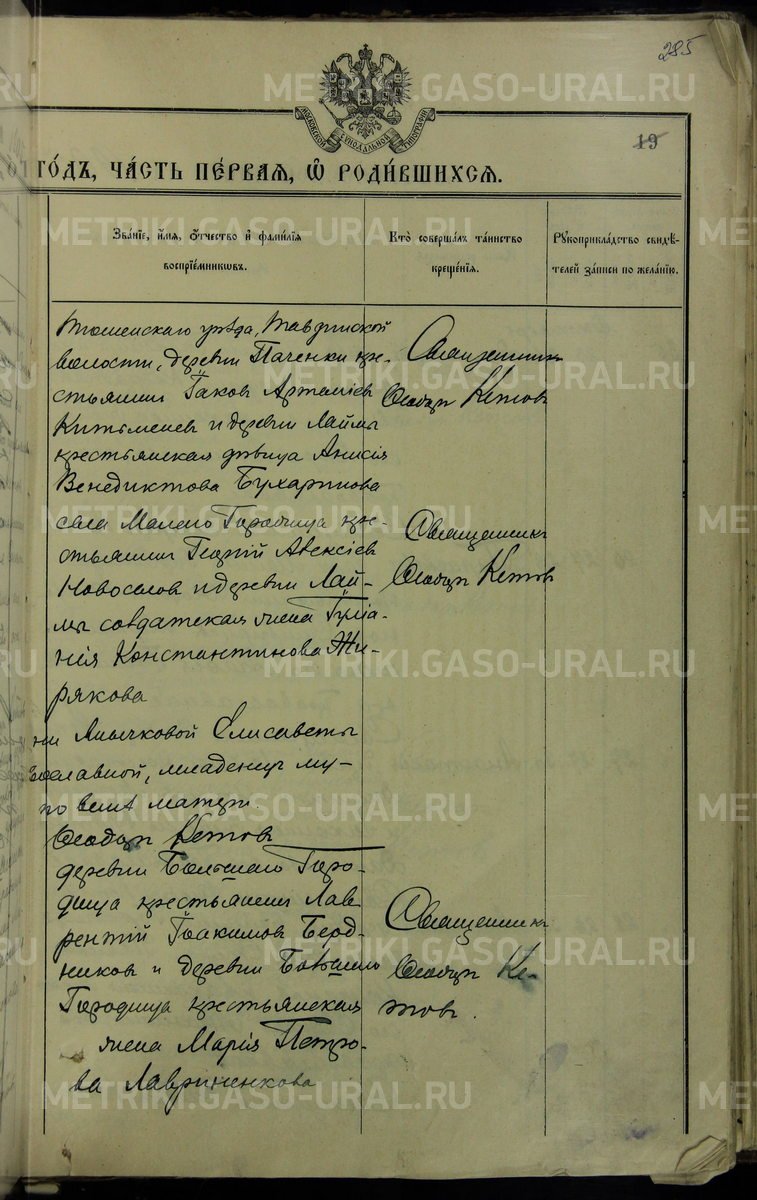 285
МОСКОВСКОЙ СѴНОДАЛЬНОЙ ТИПОГРАФІИ
19
ГО́ДЪ, ЧА́СТЬ ПЕ́РВАЯ, Ѽ РОДИ́ВШИХСЯ.
Зва́ніе, и҆́мя, ѻ҆́тчество и҆ фами́лія
воспріе́мникѡвъ.
Кто̀ соверша́лъ та́инство
креще́нія.
Рꙋкоприкла́дство свидѣ́-
телей за́писи по жела́нію.
Тюменскаго уѣзда, Тавдинской
волости, деревни Паченки кре-
стьянин Іаков Артеміев
Китьменев и деревни Лаймы
крестьянская дѣвица Анисія
Венедиктова Бухаринова
Священникъ
Ѳеодоръ Кетовъ
села Малаго Городища кре-
стьянин Георгій Алексіев
Новоселов и деревни Лай-
мы солдатская жена Гуліа-
нія Константинова Жи-
рякова
Священникъ
Ѳеодоръ Кетовъ
ни Анычковой Елисаветы
вославной, младенец му-
по вѣрѣ матери.
Ѳеодоръ Кетовъ
деревни Большаго Горо-
дища крестьянин Лав-
рентій Іоакимов Берд-
ников и деревни Большаго
Городища крестьянская
жена Марія Петро-
ва Лавриненкова
Священникъ
Ѳеодоръ Ке-
товъ.
METRIKI.GASO-URAL.RU